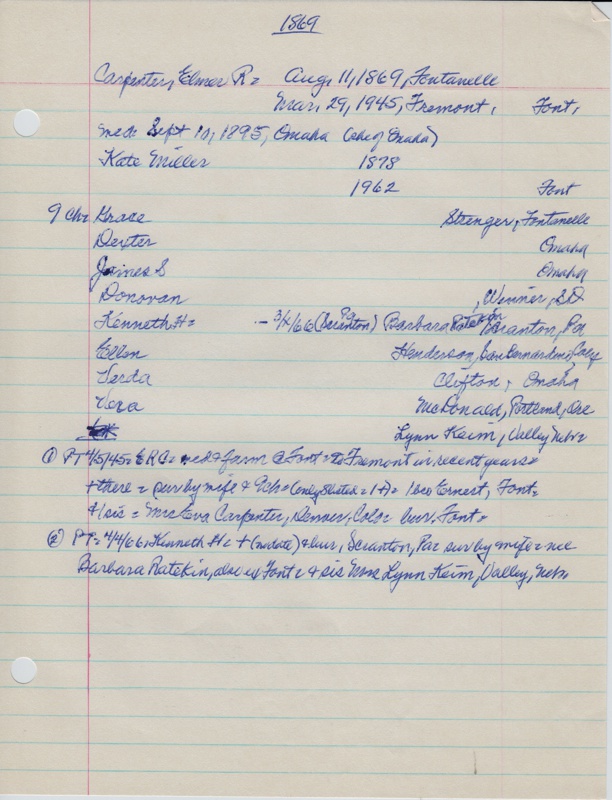 1869
Carpenter, Elmer R= Aug, 11, 1869, Fontanelle
Mar, 29, 1945, Fremont, Font,
med= Sept 10, 1895, Omaha (she of Omaha)
Kate Miller 1878
1962 Font
9 Ch= Grace Strenger, Fontanelle
Dexter Omaha
James S Omaha
Donovan , Winner, SD
Kenneth H= - 3/x/66 (Scranton) Pa Barbara Ratekin Scranton, Pa
Ellen Henderson, San Bernardino, Calif
Verda Clifton, Omaha
Vera McDonald, Portland, Ore
Lynn Keim, Valley Nebr=
① PT 4/5/45= ERC= & farm @ Font= to Fremont in recent years=
+ there= sur by wife & 9 ch= (only 8 listed= 1+)= 1 bro Ernest, Font=
& 1 sis= Mrs Eva Carpenter, Denver, Color bur. Font=
② PT= 4/4/66, Kenneth H= + (no date) & bur, Scranton, Pa= sur by wife= nee
Barbara Ratekin, also of Font= & sis Mrs Lynn Keim, Valley, Nebr,